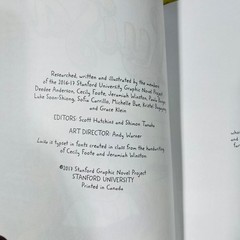 Researched, written and illustrated by the members
of the 2016-17 Stanford University Graphic Novel Project
Deedee Anderson, Cecily Foote, Jeremiah Winston,
Luke Soon-Shiong, Sofia Carrillo, Michelle Bae, Kristel
and Grace Klein
EDITORS: Scott Hutchins and Shimon Tanaka
ART DIRECTOR: Andy Warner
is typset in fonts created in class from the handwriting
of Cecily Foote and Jeremiah Winston.
©2017 Stanford Graphic Novel Project
STANFORD UNIVERSITY
Printed in Canada